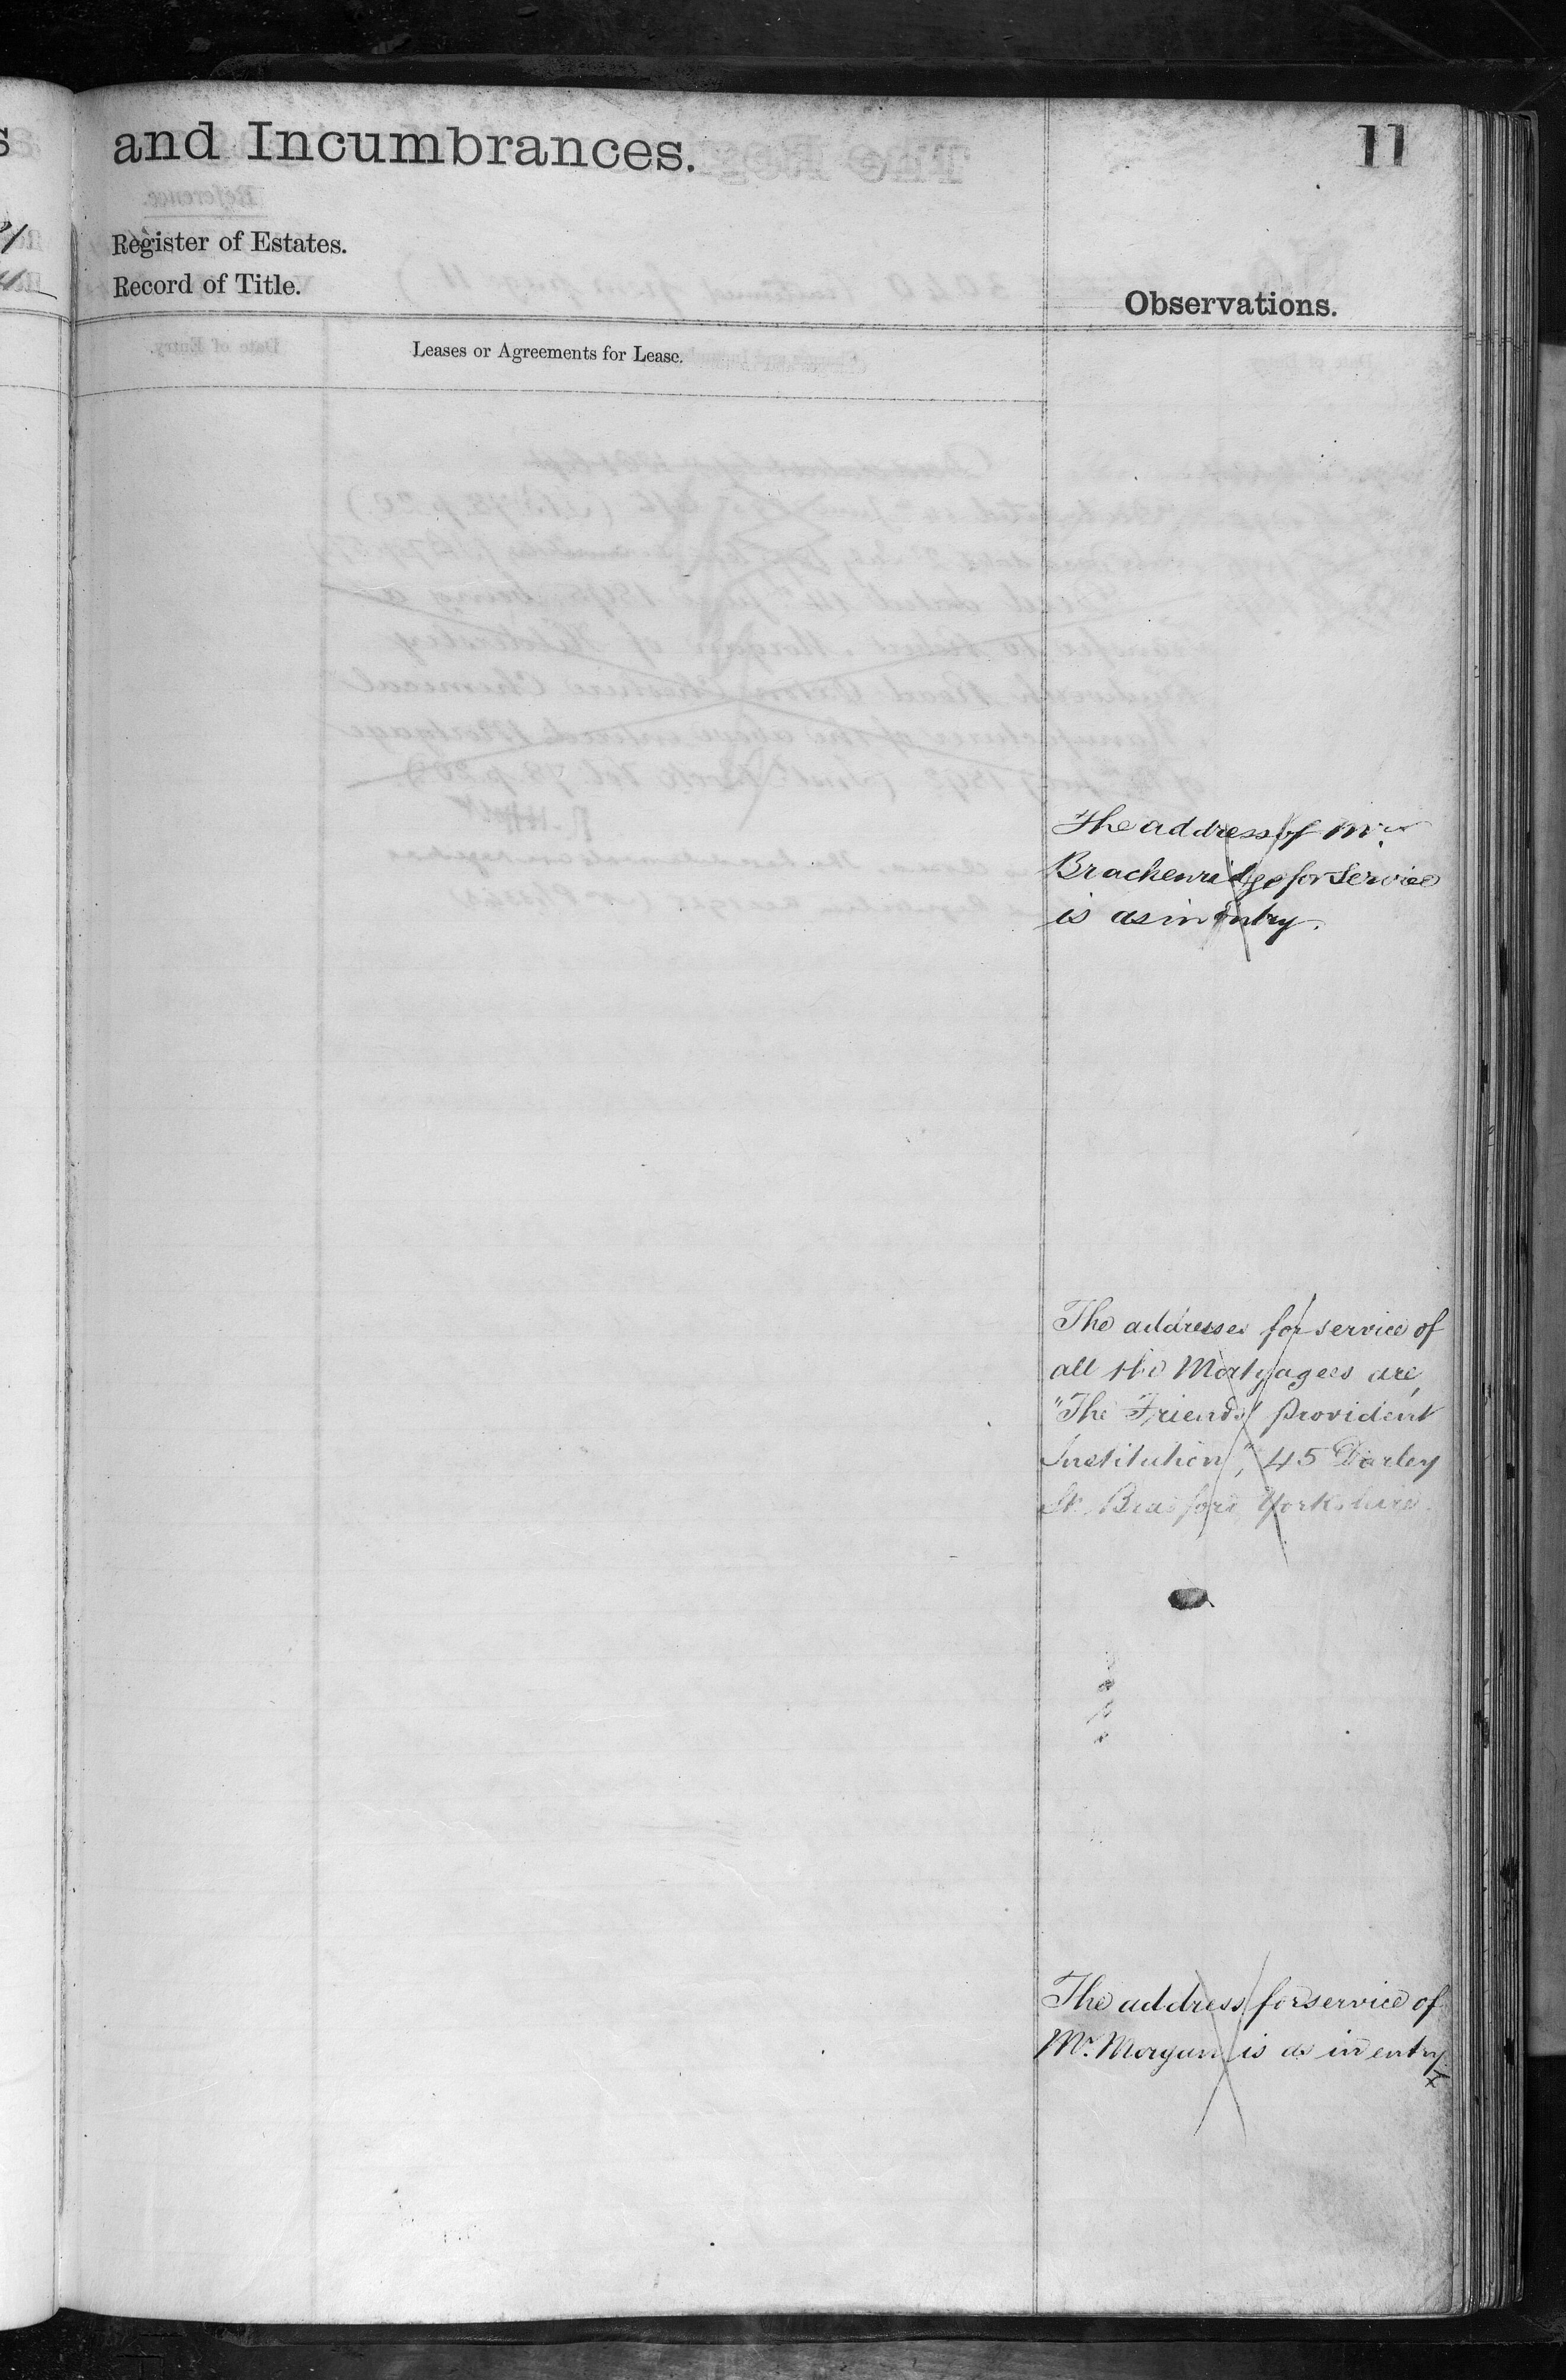 and Incumbrances.
11
Register of Estates.
Record of Title.
Observations.
Leases or Agreements for Lease.
The address of Mr.
Brackenridge for Service
is as in entry.
The addresses for service of
all the Mortgagees are,
"The Friends Provident
Institution", 45 Darley
St. Bradford Yorkshire.
The address for service of
Mr. Morgan is as in entry